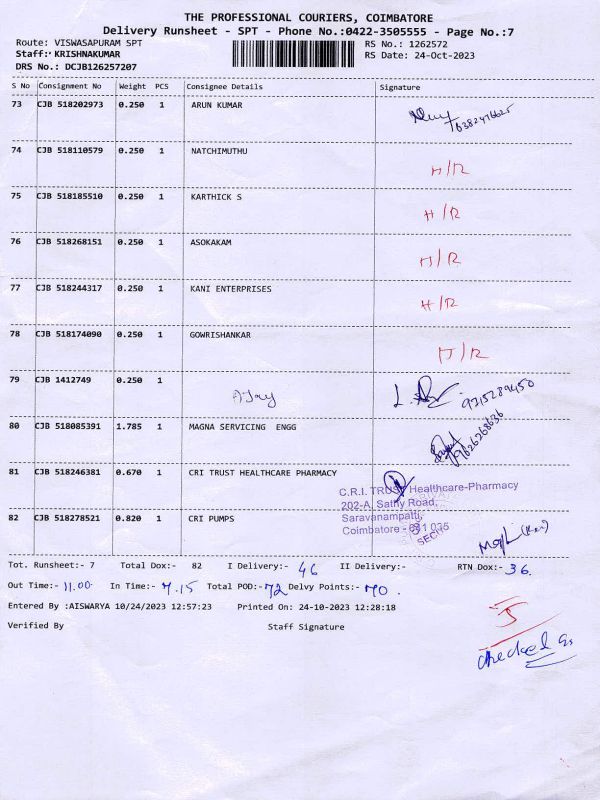 THE PROFESSIONAL COURIERS, COIMBATORE
Delivery Runsheet - SPT - Phone No.:0422-3505555 - Page No.:7
Route: VISWASAPURAM SPT RS No.: 1262572
Staff: KRISHNAKUMAR RS Date: 24-Oct-2023
DRS No.: DCJB126257207
S No Consignment No Weight PCS Consignee Details Signature
73 CJB 518202973 0.250 1 ARUN KUMAR
74 CJB 518110579 0.250 1 NATCHIMUTHU H/R
75 CJB 518185510 0.250 1 KARTHICK S H/R
76 CJB 518268151 0.250 1 ASOKAKAM H/R
77 CJB 518244317 0.250 1 KANI ENTERPRISES H/R
78 CJB 518174090 0.250 1 GOWRISHANKAR H/R
79 CJB 1412749 0.250 1 AJay 9715289450
80 CJB 518085391 1.785 1 MAGNA SERVICING ENGG 9626268636
81 CJB 518246381 0.670 1 CRI TRUST HEALTHCARE PHARMACY
C.R.I. TRUST Healthcare-Pharmacy
202-A, Sathy Road,
Saravanampatti,
Coimbatore - 641 035
82 CJB 518278521 0.820 1 CRI PUMPS
Tot. Runsheet:- 7 Total Dox:- 82 I Delivery:- 46 II Delivery:- RTN Dox:- 36.
Out Time:- 11.00 In Time:- 7.15 Total POD:- 72 Delvy Points:- 70.
Entered By :AISWARYA 10/24/2023 12:57:23 Printed On: 24-10-2023 12:28:18
Verified By Staff Signature
checked